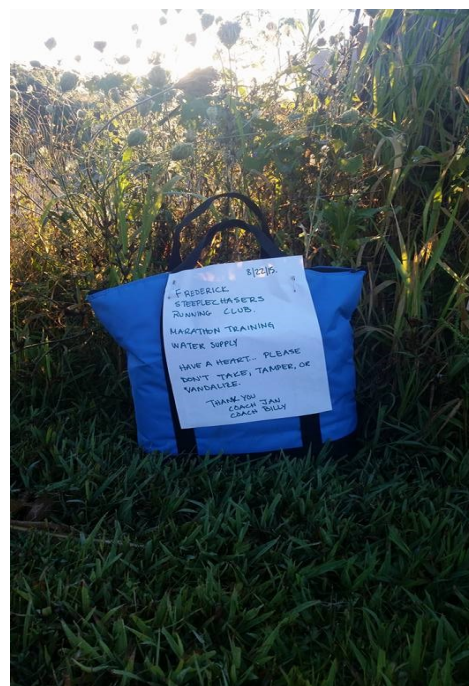 8/22/15.
FREDERICK
STEEPLECHASERS
RUNNING CLUB.
MARATHON TRAINING
WATER SUPPLY
HAVE A HEART... PLEASE
DON'T TAKE, TAMPER, OR
VANDALIZE.
THANK YOU
COACH JAN
COACH BILLY